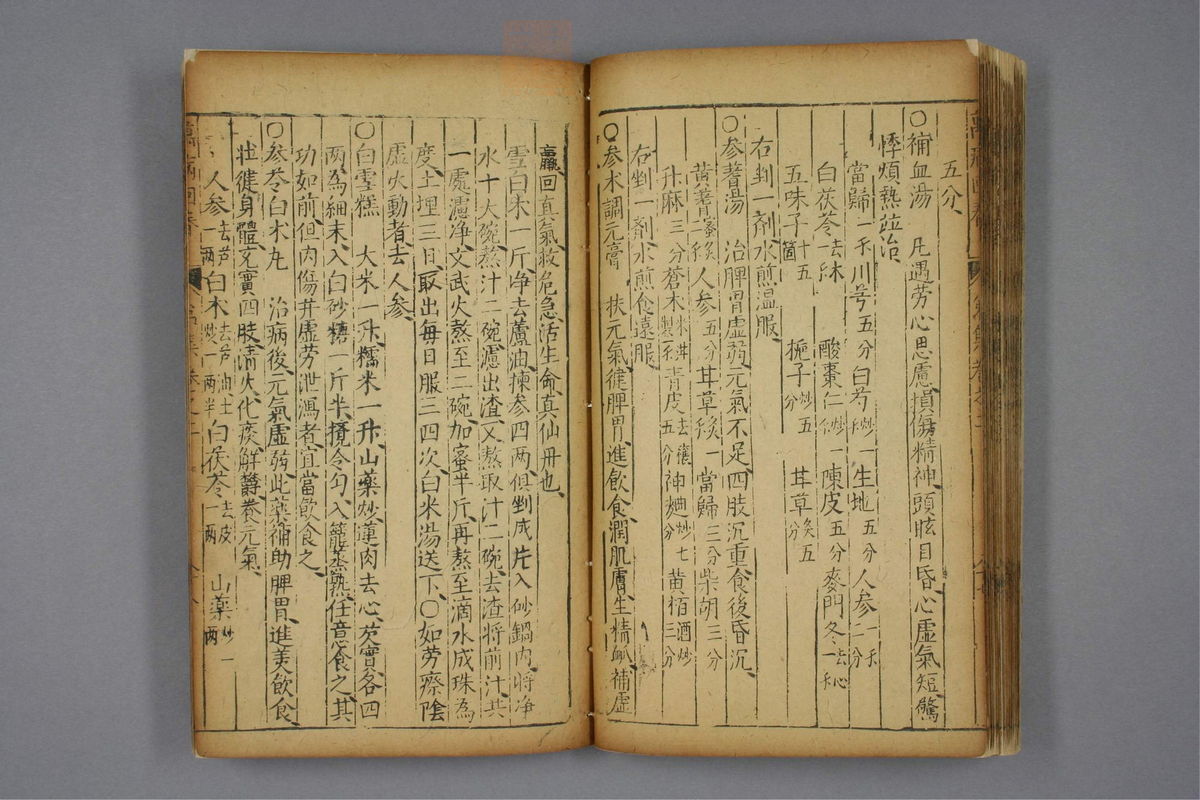 五分
○補血湯 凡遇劳心思慮損傷精神頭眩目昏心虛氣短驚
悸煩熱並治
當歸一禾川芎五分白芍炒一禾生地五分人参一禾二分
白茯苓去木一禾 酸棗仁炒一禾陳皮五分麥門冬去心一禾
五味子十五箇 梔子炒五分 甘草炙五分
右剉一剤水煎温服
○参蓍湯 治脾胃虛弱元氣不足四肢沉重食後昏沉
黄蓍蜜炙二禾人参五分甘草炙一當歸三分柴胡三分
升麻三分蒼术米泔製一禾青皮去穰五分神麯炒七分黄栢酒炒三分
右剉一剤水煎食遠服
○参术調元膏 扶元氣健脾胃進飲食潤肌膚生精脈補虛
羸回真氣救危急活生命真仙丹也
雪白术一斤净去蘆油揀参四两俱剉成片入砂鍋内将净
水十大碗熬汁二碗濾出渣又熬取汁二碗去渣将前汁共
一處濾净文武火熬至二碗加蜜半斤再熬至滴水成珠為
度土埋三日取出每日服三四次白米湯送下○如劳瘵陰
虛火動者去人参
○白雪糕 大米一升糯米一升山藥炒蓮肉去心芡實各四
两為細末入白砂糖一斤半攪令匀入籠蒸熟任意食之其
功如前但内傷并虛劳泄瀉者宜當飲食之
○参苓白术丸 治病後元氣虛弱此藥補助脾胃進美飲食
壮健身體充實四肢清火化痰解欝養元氣
人参去芦一两白术去芦油土炒一两半白茯苓去皮一两 山藥炒一两